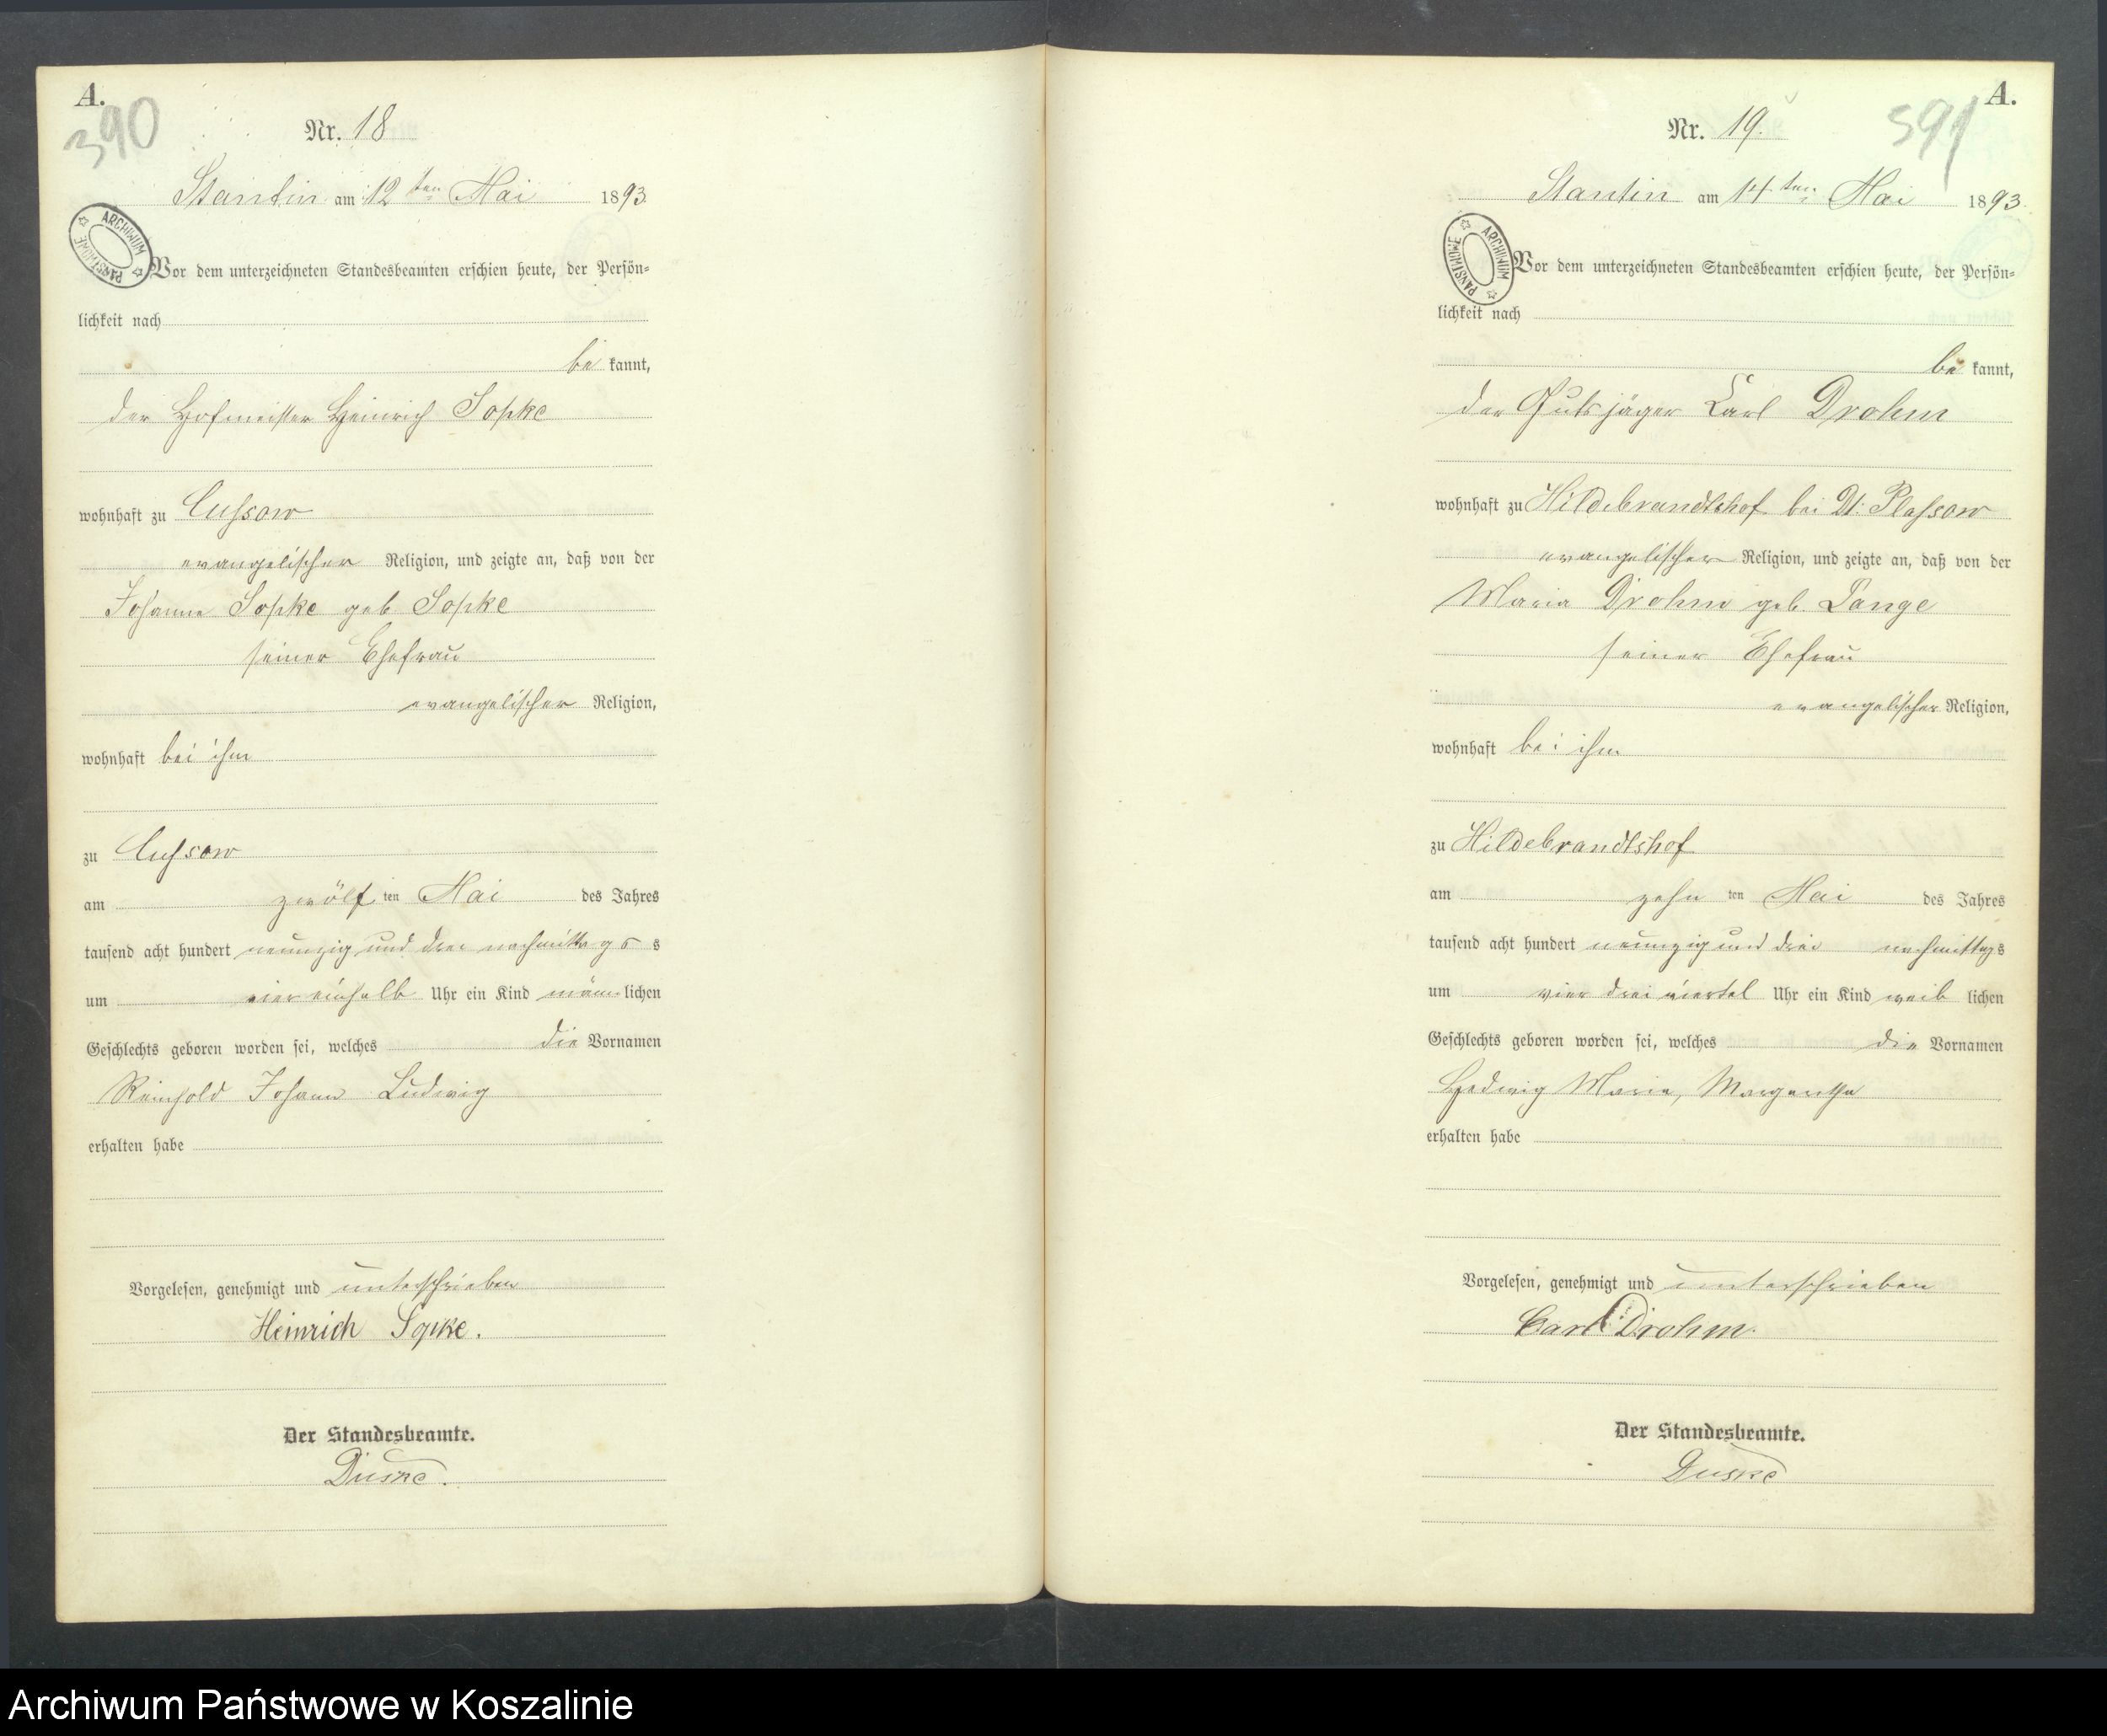 A.
390
Nr. 18
Stantin am 12ten Mai 1893.
ARCHIWUM PAŃSTWOWE
Vor dem unterzeichneten Standesbeamten erschien heute, der Persön-
lichkeit nach
be kannt,
der Hofmeister Heinrich Sopke
wohnhaft zu Cussow
evangelischer Religion, und zeigte an, daß von der
Johanne Sopke geb Sopke
seiner Ehefrau
evangelischer Religion,
wohnhaft bei ihm
zu Cussow
am zwölf ten Mai des Jahres
tausend acht hundert neunzig und drei nachmittags s
um vier einhalb Uhr ein Kind männ lichen
Geschlechts geboren worden sei, welches die Vornamen
Reinhold Johann Ludwig
erhalten habe
Vorgelesen, genehmigt und unterschrieben
Heinrich Sopke.
Der Standesbeamte.
A.
391
Nr. 19.
Stantin am 14ten Mai 1893
ARCHIWUM PAŃSTWOWE
Vor dem unterzeichneten Standesbeamten erschien heute, der Persön-
lichkeit nach
be kannt,
der Gutsjäger Carl Drohm
wohnhaft zu Hildebrandtshof bei Dt. Plassow
evangelischer Religion, und zeigte an, daß von der
Maria Drohm geb. Lange
seiner Ehefrau
evangelischer Religion,
wohnhaft bei ihm
zu Hildebrandtshof
am zehn ten Mai des Jahres
tausend acht hundert neunzig und drei nachmittags
um vier drei viertel Uhr ein Kind weib lichen
Geschlechts geboren worden sei, welches die Vornamen
Hedwig Marie, Margarethe
erhalten habe
Vorgelesen, genehmigt und unterschrieben
Carl Drohm.
Der Standesbeamte.
Archiwum Państwowe w Koszalinie